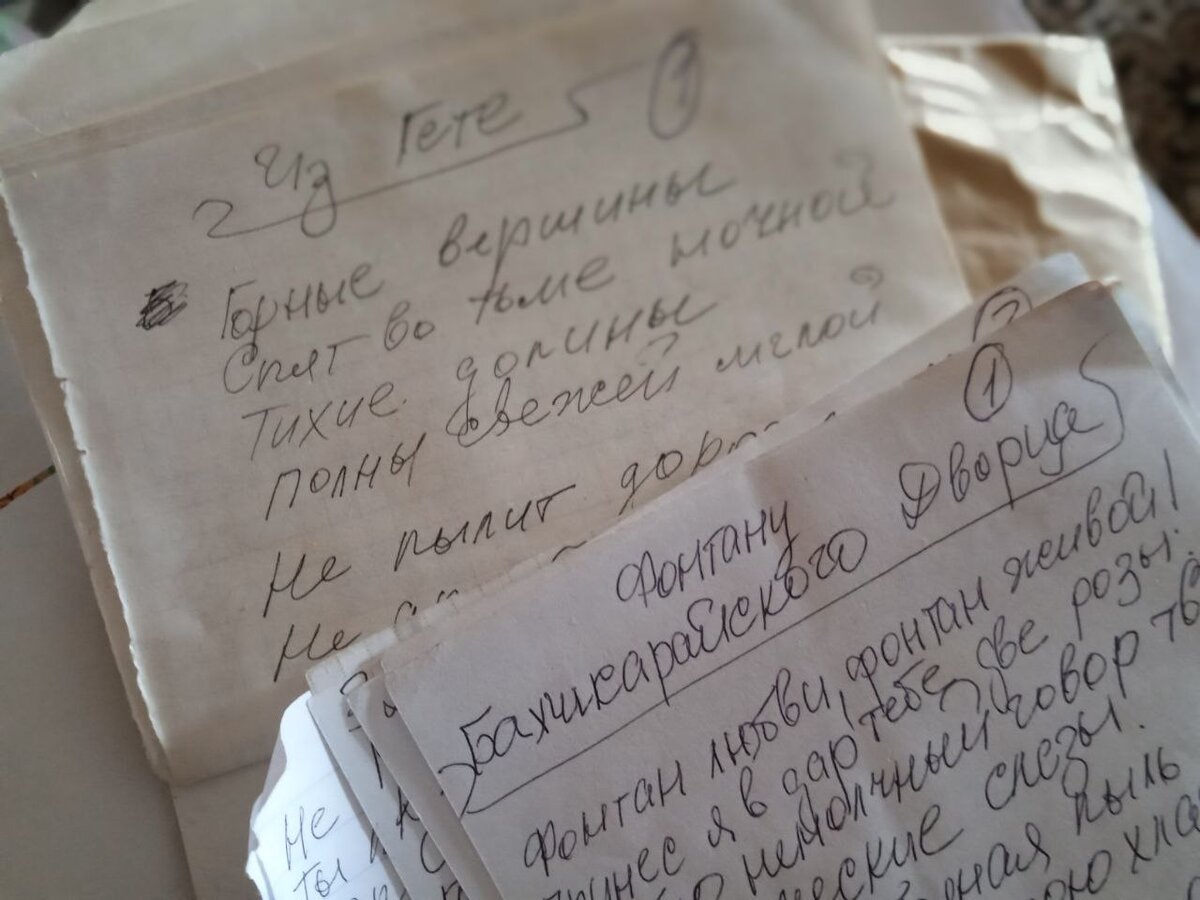 Из Гете
1
Горные вершины
Спят во тьме ночной
Тихие долины
полны свежей мглой
Не пылит
Не
2
1
Фонтану
Бахчисарайского Дворца
Фонтан любви, фонтан живой!
принес я в дар тебе две розы.
немолчный говор
слезы.
пыль
Не
ты